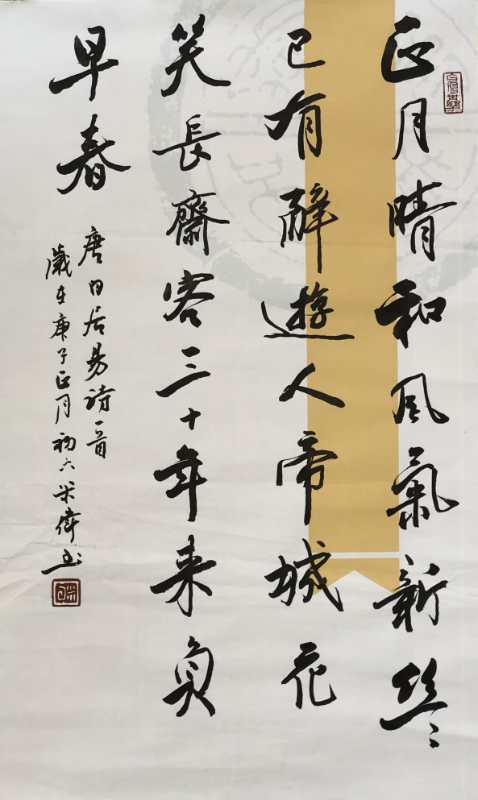 正月晴和风氣新紛々
已有醉遊人帝城花
笑長齋客三十年来負
早春
唐白居易詩一首
歲在庚子正月初六米偉书